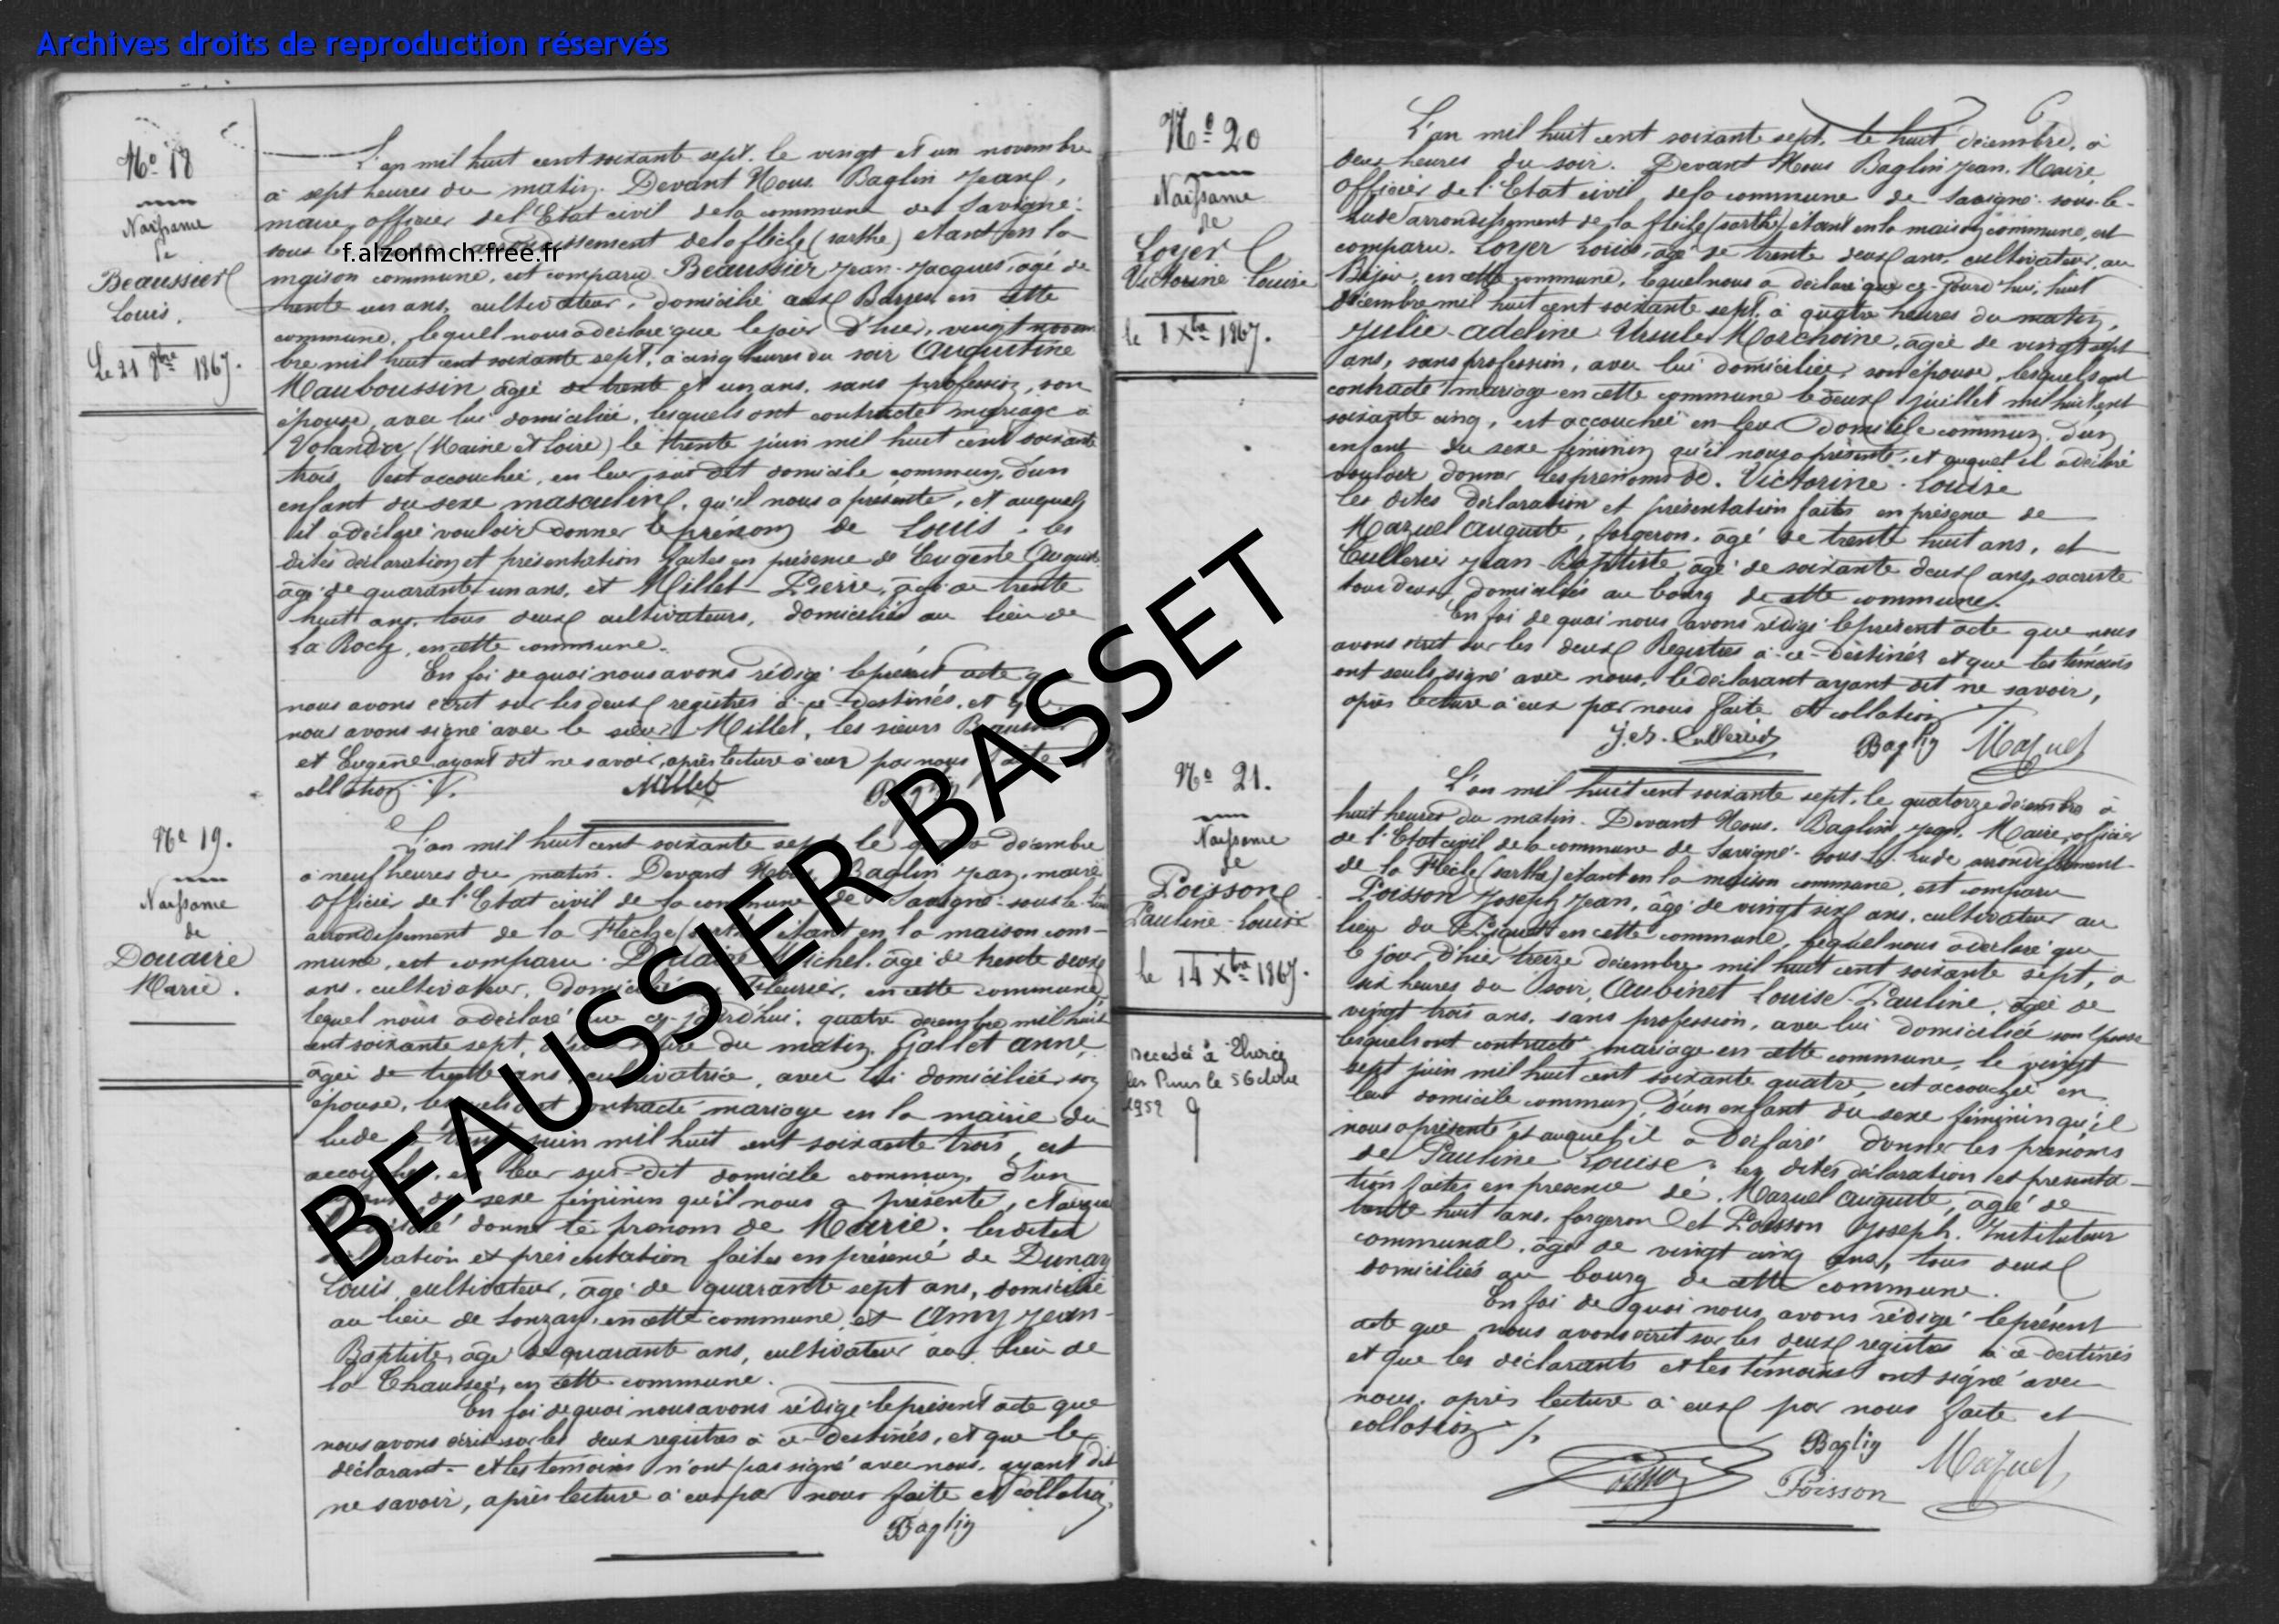 Archives droits de reproduction réservés
f.alzonmch.free.fr
BEAUSSIER BASSET
No 18
Naissance
de
Beaussier
Louis.
Le 21 9bre 1867.
L'an mil huit cent soixante sept, le vingt et un novembre
à sept heures du matin. Devant Nous Baglin Jean,
maire, officier de l'Etat civil de la commune de Savigné-
sous le arrondissement de la flèche (sarthe) étant en la
maison commune, est comparu Beaussier Jean-Jacques, âgé de
trente un ans, cultivateur, domicilié aux Barres en cette
commune, lequel nous a déclaré que le jour d'hier, vingt novem
bre mil huit cent soixante sept, à cinq heures du soir Augustine
Mauboussin âgée de trente et un ans, sans profession, son
épouse, avec lui domiciliée, lesquels ont contracté mariage à
(Maine et Loire) le trente juin mil huit cent soixante
trois, est accouchée, en leur sus dit domicile commun, d'un
enfant du sexe masculin, qu'il nous a présenté, et auquel
il a déclaré vouloir donner le prénom de Louis; les
dites déclaration et présentation faites en présence de Eugène
âgé de quarante un ans, et Millet Pierre, âgé de trente
huit ans, tous deux cultivateurs, domiciliés au lieu de
la Roche, en cette commune.
En foi de quoi nous avons rédigé le présent acte que
nous avons écrit sur les deux registres à ce destinés, et que
nous avons signé avec le sieur Millet, les sieurs Beaussier
et Eugène ayant dit ne savoir, après lecture à eux par nous faite et
collation ./.
Millet
Baglin
No 19.
Naissance
de
Douaire
Marie.
L'an mil huit cent soixante sept le quatre décembre
à neuf heures du matin. Devant Nous, Baglin Jean, maire
Officier de l'Etat civil de la commune de Savigné-sous-le-lude
arrondissement de la Flèche (sarthe) étant en la maison com-
mune, est comparu Douaire Michel, âgé de trente deux
ans, cultivateur, domicilié en cette commune,
lequel nous a déclaré que ce jourd'hui, quatre décembre mil huit
cent soixante sept, à une heure du matin, Gallet anne,
âgée de trente ans, cultivatrice, avec lui domiciliée, son
épouse, lesquels ont contracté mariage en la mairie du
lude, le juin mil huit cent soixante trois, est
accouchée, en leur sus-dit domicile commun, d'un
enfant du sexe féminin qu'il nous a présenté, et auquel
il a déclaré donner le prénom de Marie; les dites
déclaration et présentation faites en présence de Dunay
Louis, cultivateur, âgé de quarante sept ans, domicilié
au lieu de en cette commune, et Amy Jean-
Baptiste, âgé de quarante ans, cultivateur au lieu de
la Chaussée, en cette commune.
En foi de quoi nous avons rédigé le présent acte que
nous avons écrit sur les deux registres à ce destinés, et que le
déclarant et les témoins n'ont pas signé avec nous, ayant dit
ne savoir, après lecture à eux par nous faite et collation.
Baglin
No 20
Naissance
de
Loyer
Victorine-Louise
le 8 Xbre 1867.
L'an mil huit cent soixante sept, le huit décembre, à
deux heures du soir. Devant Nous Baglin Jean, Maire,
Officier de l'Etat civil de la commune de Savigné-sous-le-
lude arrondissement de la flèche (sarthe) étant en la maison commune, est
comparu Loyer Louis, âgé de trente deux ans, cultivateur, au
en cette commune, lequel nous a déclaré que ce-jourd'hui, huit
décembre mil huit cent soixante sept, à quatre heures du matin,
Julie-Adeline-Ursule Marchoine, âgée de vingt sept
ans, sans profession, avec lui domiciliée, son épouse, lesquels ont
contracté mariage en cette commune le deux juillet mil huit cent
soixante cinq, est accouchée en leur domicile commun, d'un
enfant du sexe féminin qu'il nous a présenté, et auquel il a déclaré
vouloir donner les prénoms de Victorine-Louise
les dites déclaration et présentation faites en présence de
Mazuel Auguste, forgeron, âgé de trente huit ans, et
Cullerier Jean-Baptiste âgé de soixante deux ans, sacriste
tous deux domiciliés au bourg de cette commune.
En foi de quoi nous avons rédigé le présent acte que nous
avons écrit sur les deux Registres à-ce-Destinés et que les témoins
ont seuls signé avec nous, le déclarant ayant dit ne savoir,
après lecture à eux par nous faite et collation
J.B. Cullerier
Baglin
Mazuel
No 21.
Naissance
de
Poisson
Pauline-Louise
le 14 Xbre 1867.
Décédée à
les Pins le 5 Octobre
1952
L'an mil huit cent soixante sept, le quatorze décembre à
huit heures du matin. Devant Nous, Baglin, Jean, Maire, officier
de l'Etat civil de la commune de Savigné-sous-le-lude arrondissement
de la Flèche (sarthe) étant en la maison commune, est comparu
Poisson Joseph Jean, âgé de vingt six ans, cultivateur au
lieu du en cette commune, lequel nous a déclaré que
le jour d'hier treize décembre mil huit cent soixante sept, à
six heures du soir, Aubinet Louise-Pauline, âgée de
vingt trois ans, sans profession, avec lui domiciliée son épouse
lesquels ont contracté mariage en cette commune, le vingt
sept juin mil huit cent soixante quatre, est accouchée en
leur domicile commun, d'un enfant du sexe féminin qu'il
nous a présenté et auquel il a déclaré donner les prénoms
de Pauline Louise; les dites déclaration et présenta-
tion faites en présence de Mazuel Auguste, âgé de
trente huit ans, forgeron et Poisson Joseph, Instituteur
communal, âgé de vingt cinq ans, tous deux
domiciliés au bourg de cette commune.
En foi de quoi nous avons rédigé le présent
acte que nous avons écrit sur les deux registres à ce-destinés
et que les déclarants et les témoins ont signé avec
nous, après lecture à eux par nous faite et
collation ./.
Baglin
Mazuel
Poisson
Poisson